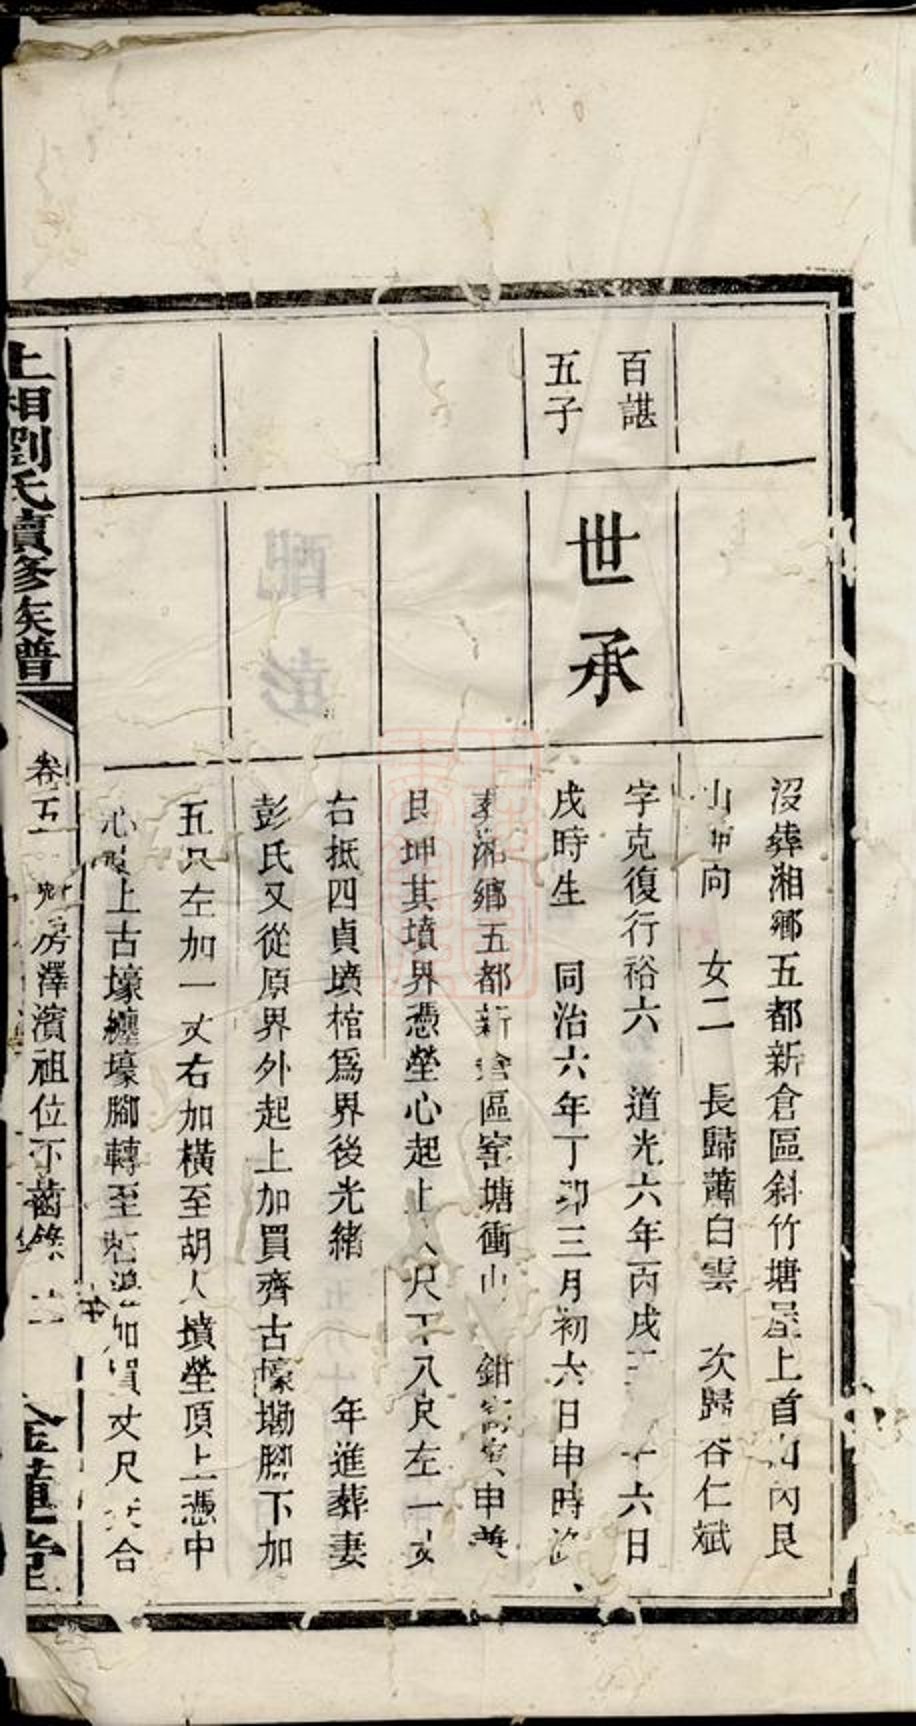 百諶
五子
世承
沒葬湘鄉五都新倉區斜竹塘屋上首山內艮
山坤向 女二 長歸蕭白雲 次歸谷仁斌
字克復行裕六 道光六年丙戌十六日
戌時生 同治六年丁卯三月初六日申時
湘鄉五都新倉區窑塘衝山鉗寅申兼
艮坤其墳界憑塋心起上尺下八尺左一丈
右抵四貞墳棺爲界後光緒 年進葬妻
彭氏又從原界外起上加買齊古壕墈腳下加
五尺左加一丈右加橫至胡人墳塋頂上憑中
心上古壕纏壕腳轉至加買丈尺合
上湘劉氏續修族譜
卷五 房澤濱祖位下齒錄
金蓮堂